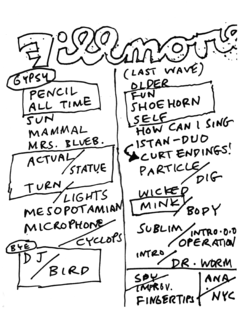 Fillmore
GYPSY
PENCIL
ALL TIME
SUN
MAMMAL
MRS. BLUEB.
ACTUAL/
STATUE
TURN/
LIGHTS
MESOPOTAMIAN
MICROPHONE/
CYCLOPS
BYE
DJ/
BIRD
(LAST WAVE)
OLDER
FUN
SHOEHORN
SELF
HOW CAN I SING
ISTAN-DUO
CURT ENDINGS!
PARTICLE/
DIG
WICKED
MINK/
BODY
SUBLIM/
INTRO·O·O
OPERATION
INTRO/
DR. WORM
SPY/
IMPROV.
FINGERTIPS
ANA/
NYC